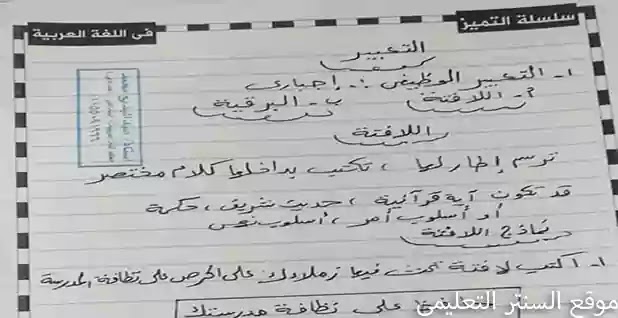 سلسلة التميز
فى اللغة العربية
التعبير
١- التعبير الوظيفى :- إجبارى
أ- اللافتة ب- البرقية
اللافتة
ترسم إطار لها ، تكتب بداخلها كلام مختصر
قد تكون آية قرآنية ، حديث شريف ، حكمة
أو أسلوب أمر ، أسلوب نهى
نماذج اللافتة
١- اكتب لافتة تحث فيها زملاءك على الحرص على نظافة المدرسة
على نظافة مدرستك
موقع السنتر التعليمى